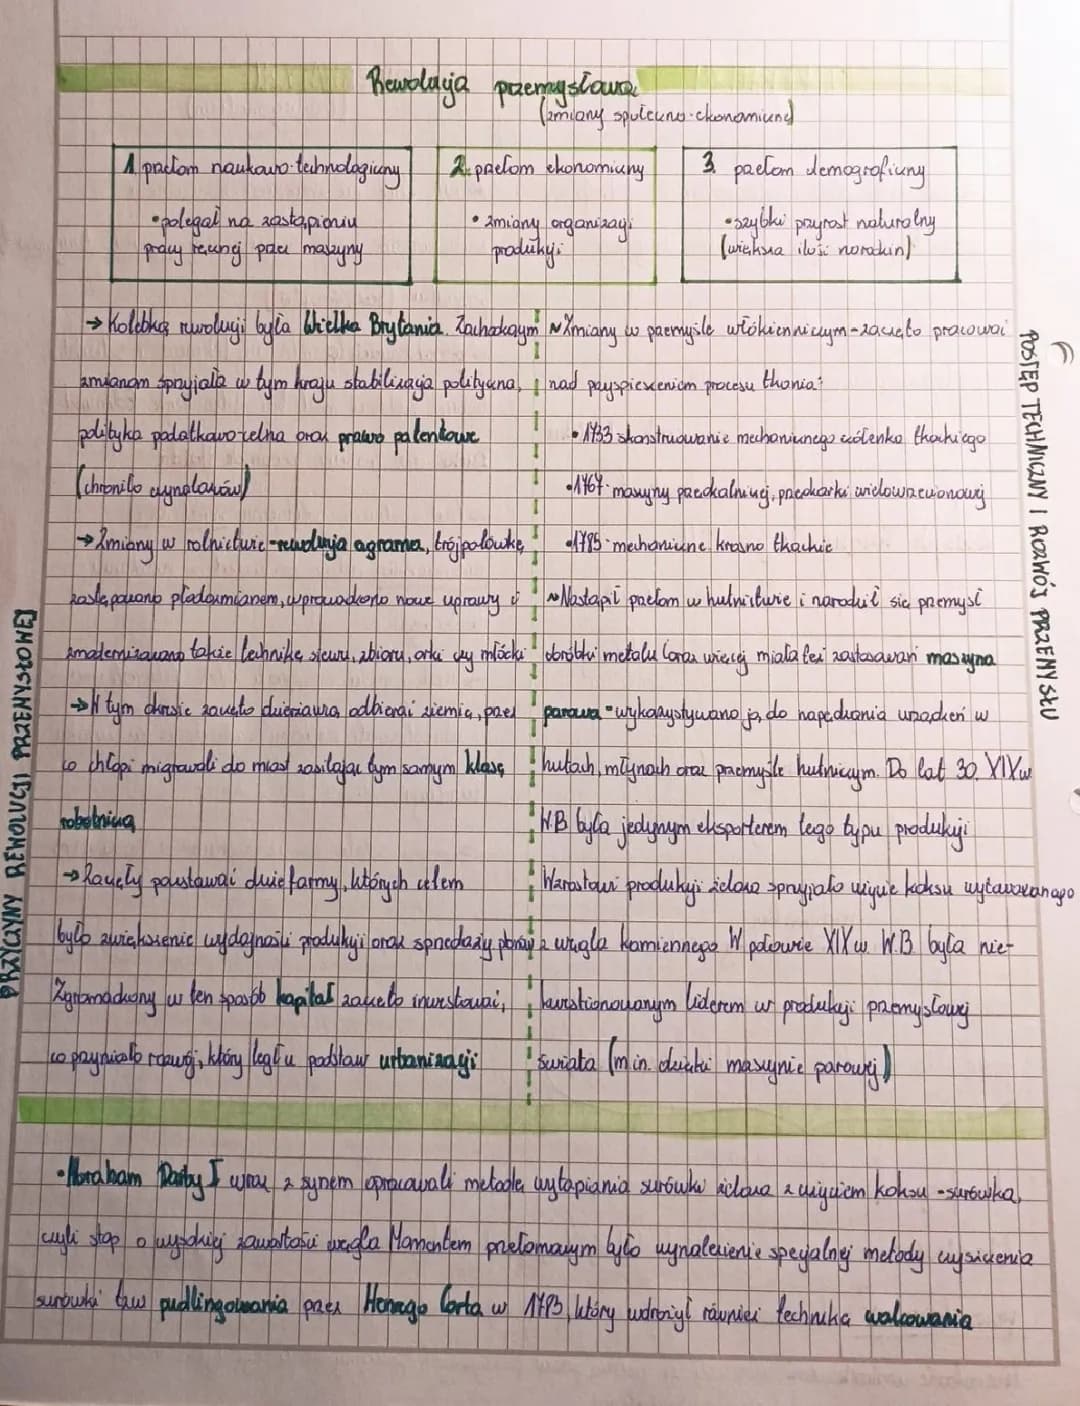 Rewolucja przemysłowa
(zmiany społeczno-ekonomiczne)
1. przełom naukowo-technologiczny
•polegał na zastąpieniu
pracy ręcznej przez maszyny
2. przełom ekonomiczny
• zmiany organizacji
produkcji
3. przełom demograficzny
•szybki przyrost naturalny
(większa ilość narodzin)
PRZYCZYNY REWOLUCJI PRZEMYSŁOWEJ
→ Kolebką rewolucji była Wielka Brytania. Zachodzącym
zmianom sprzyjała w tym kraju stabilizacja polityczna,
polityka podatkowo-celna oraz prawo patentowe
(chroniło wynalazców)
→ Zmiany w rolnictwie -rewolucja agrarna, trójpolówkę
zastępowano płodozmianem, wprowadzono nowe uprawy i
zmodernizowano także technikę siewu, zbioru, orki czy młócki
→ W tym okresie zaczęto dzierżawcą odbierać ziemię, przez
co chłopi migrowali do miast zasilając tym samym klasę
robotniczą
→ Zaczęły powstawać duże farmy, których celem
było zwiększenie wydajności produkcji oraz sprzedaży
Zgromadzony w ten sposób kapitał zaczęto inwestować,
co przyniosło rozwój, który legł u podstaw urbanizacji
POSTĘP TECHNICZNY I ROZWÓJ PRZEMYSŁU
~ Zmiany w przemyśle włókienniczym - zaczęto pracować
nad przyspieszeniem procesu tkania:
• 1733 skonstruowanie mechanicznego czółenka tkackiego
•1767- maszyny przędzalniczej, przędzarki wielowrzecionowej
•1785- mechaniczne krosno tkackie
~ Nastąpił przełom w hutnictwie i narodził się przemysł
obróbki metalu Coraz więcej miała też zastosowań maszyna
parowa - wykorzystywano ją do napędzania urządzeń w
hutach, młynach oraz przemyśle hutniczym. Do lat 30. XIX w
W.B była jedynym eksporterem tego typu produkcji
Wzrostowi produkcji żelaza sprzyjało użycie koksu wytwarzanego
z węgla kamiennego W połowie XIX w. W.B była nie-
kwestionowanym liderem w produkcji przemysłowej
świata (m.in. dzięki maszynie parowej)
• Abraham Darby I wraz z synem opracowali metodę wytapiania surówki żelaza z użyciem koksu - surówka,
czyli stop o wysokiej zawartości węgla Momentem przełomowym było wynalezienie specjalnej metody
surówki tzw pudlingowania przez Henrego Corta w 1783, który wdrożył również technikę walcowania